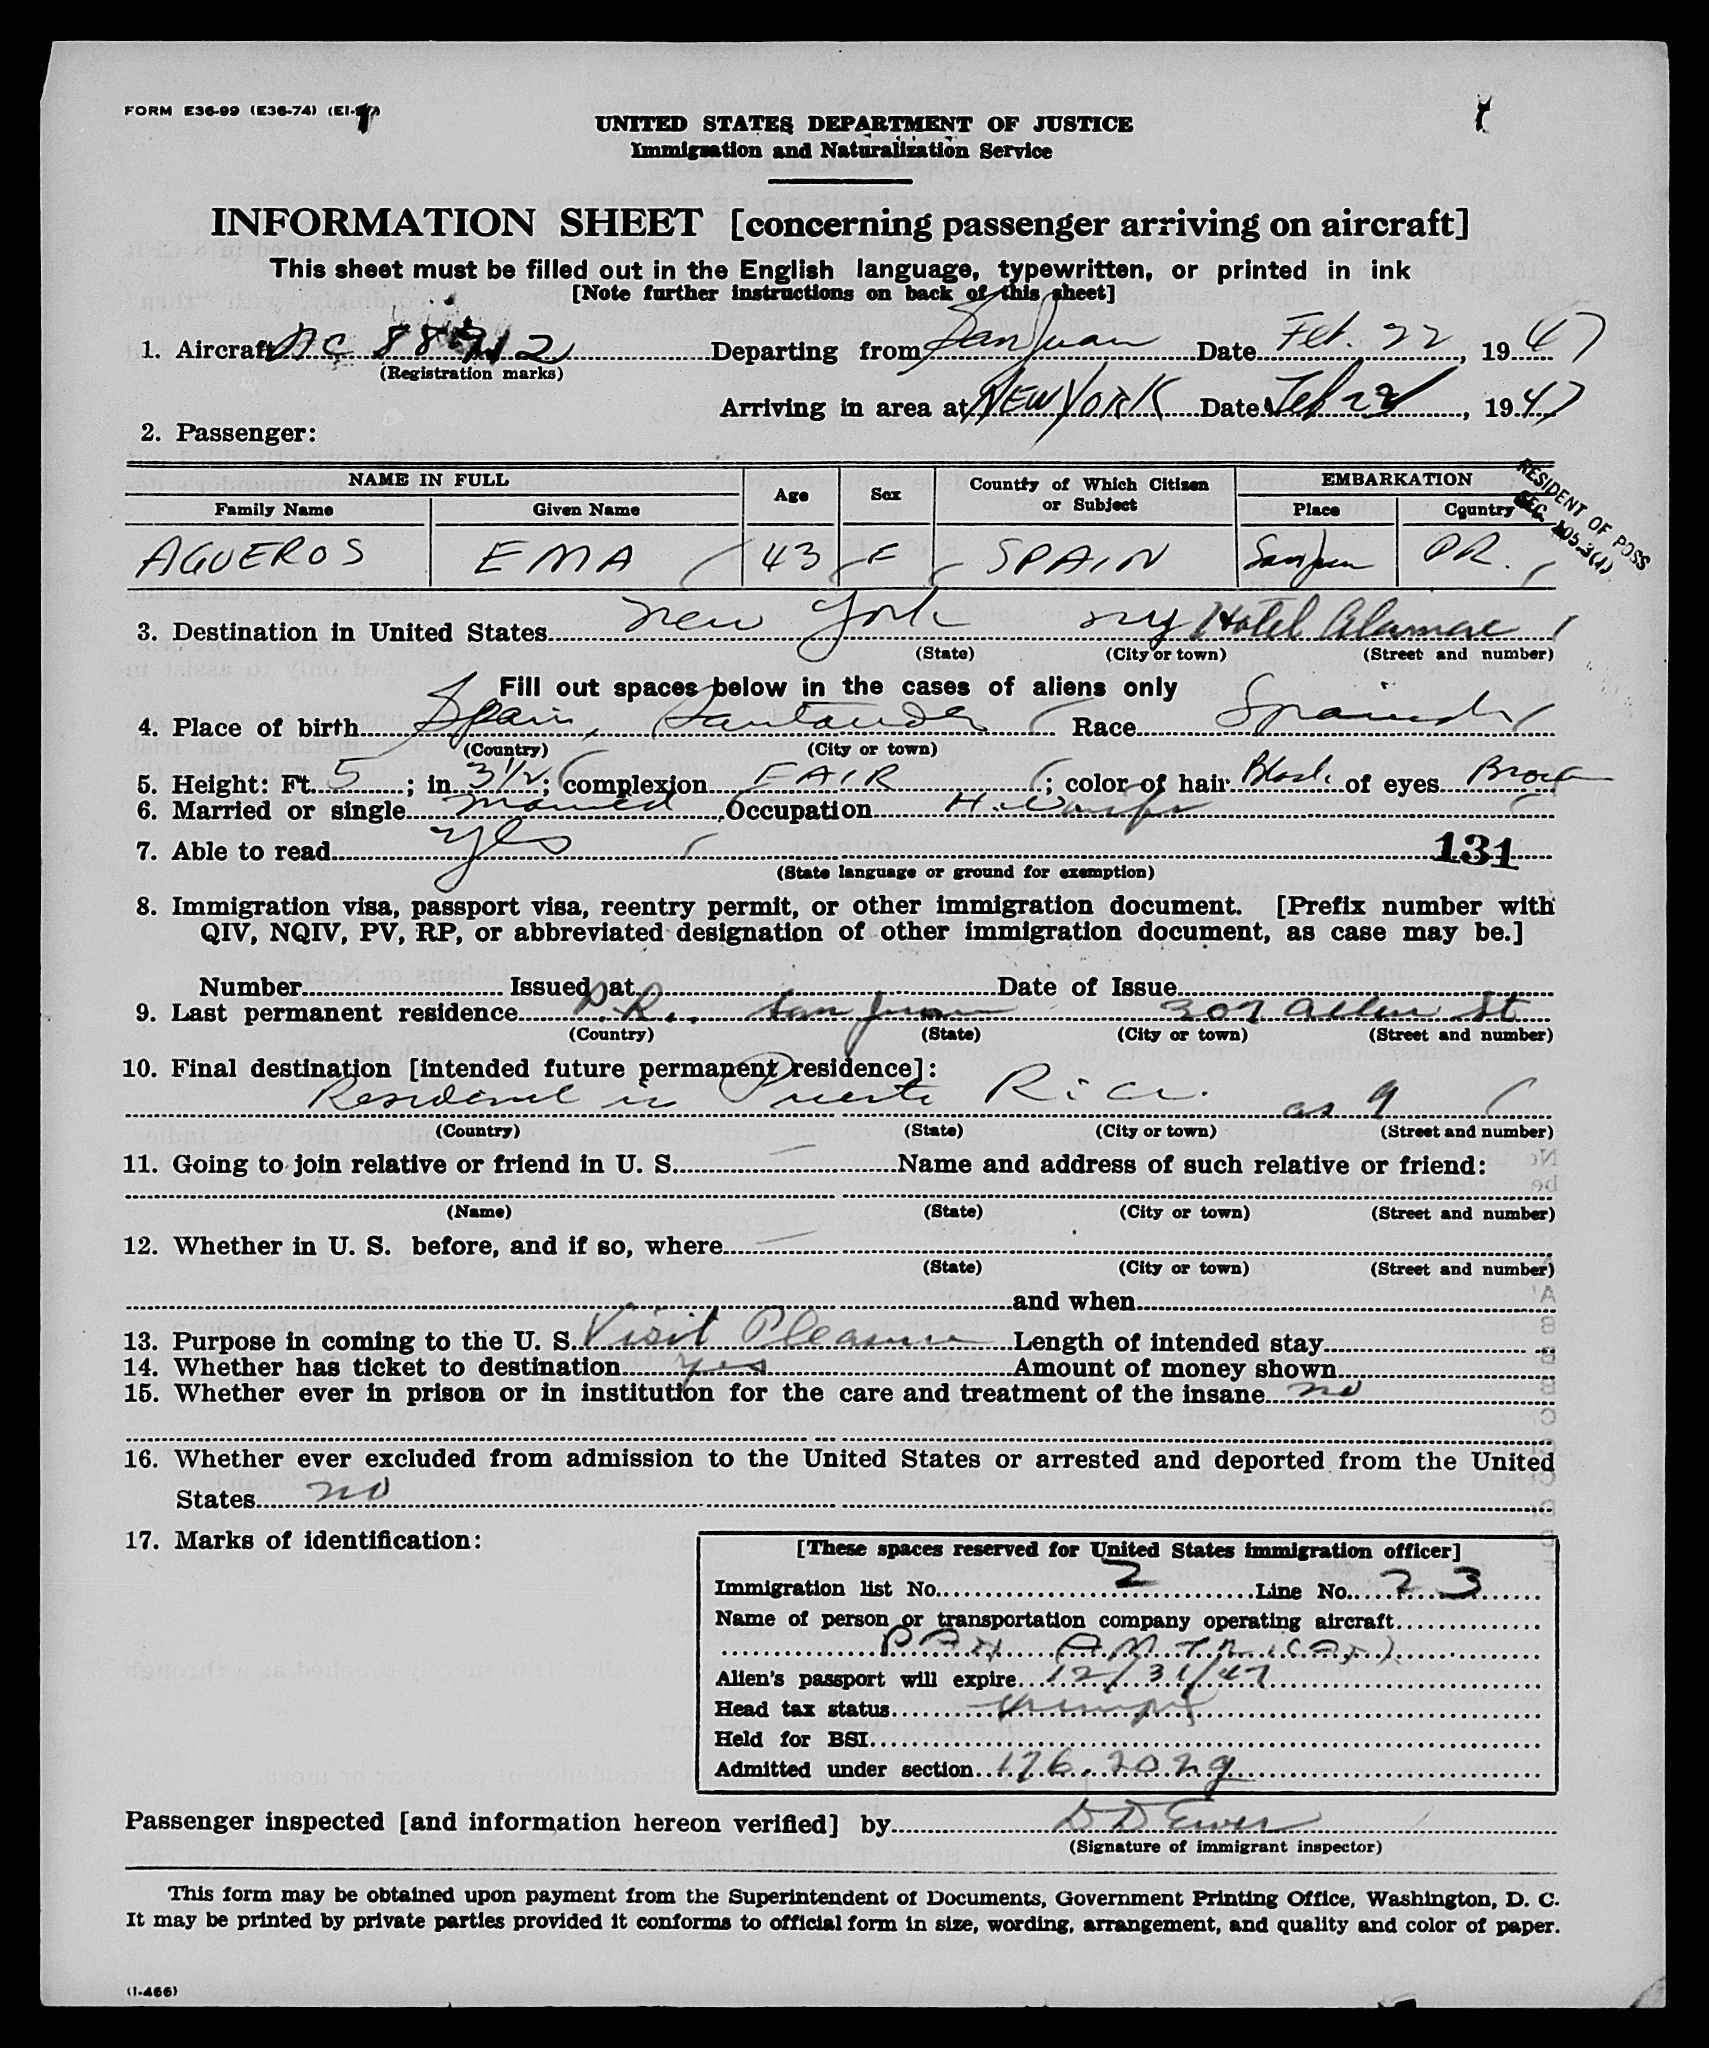 FORM E36-99 (E36-74) (EI-
UNITED STATES DEPARTMENT OF JUSTICE
Immigration and Naturalization Service
INFORMATION SHEET [concerning passenger arriving on aircraft]
This sheet must be filled out in the English language, typewritten, or printed in ink
[Note further instructions on back of this sheet]
1. Aircraft NC 88912 Departing from San Juan Date Feb. 22, 1947
(Registration marks)
Arriving in area at NEW YORK Date Feb 22, 1947
2. Passenger:
NAME IN FULL Age Sex Country of Which Citizen or Subject EMBARKATION
Family Name Given Name Place Country
RESIDENT OF POSS
SEC. 105.3(1)
AGUEROS EMA 43 F SPAIN San Juan P.R.
3. Destination in United States New York NY Hotel Alamac
(State) (City or town) (Street and number)
Fill out spaces below in the cases of aliens only
4. Place of birth Spain, Santander Race Spanish
(Country) (City or town)
5. Height: Ft. 5; in 3 1/2; complexion FAIR; color of hair Black of eyes Brown
6. Married or single Married Occupation H. Wife
7. Able to read yes 131
(State language or ground for exemption)
8. Immigration visa, passport visa, reentry permit, or other immigration document. [Prefix number with
QIV, NQIV, PV, RP, or abbreviated designation of other immigration document, as case may be.]
Number Issued at Date of Issue
9. Last permanent residence P.R. San Juan 307 Allen St
(Country) (State) (City or town) (Street and number)
10. Final destination [intended future permanent residence]:
Resident in Puerto Rico. as 9
(Country) (State) (City or town) (Street and number)
11. Going to join relative or friend in U. S. Name and address of such relative or friend:
(Name) (State) (City or town) (Street and number)
12. Whether in U. S. before, and if so, where
(State) (City or town) (Street and number)
and when
13. Purpose in coming to the U. S. Visit Pleasure Length of intended stay
14. Whether has ticket to destination yes Amount of money shown
15. Whether ever in prison or in institution for the care and treatment of the insane no
16. Whether ever excluded from admission to the United States or arrested and deported from the United
States no
17. Marks of identification:
[These spaces reserved for United States immigration officer]
Immigration list No. 2 Line No. 23
Name of person or transportation company operating aircraft
PAN AMER
Alien's passport will expire 12/31/47
Head tax status exempt
Held for BSI
Admitted under section 176.202g
Passenger inspected [and information hereon verified] by D D Ewer
(Signature of immigrant inspector)
This form may be obtained upon payment from the Superintendent of Documents, Government Printing Office, Washington, D. C.
It may be printed by private parties provided it conforms to official form in size, wording, arrangement, and quality and color of paper.
(I-466)